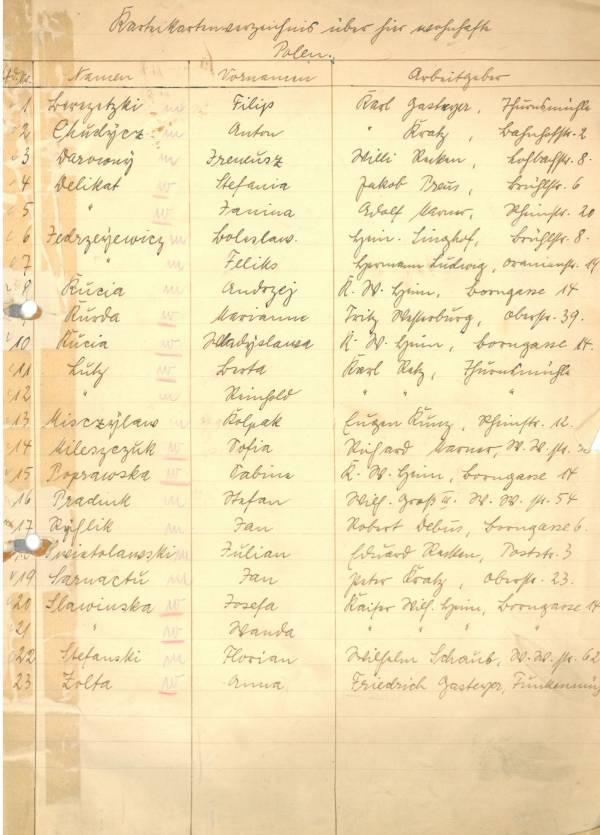 Karteikartenverzeichnis über hier wohnhafte
Polen.
Lfd. Nr. Namen Vornamen Arbeitgeber
1 Berezetzki m Filip Karl Gasteyer, Thurnsmühle
2 Chudycz m Anton " Kratz, Bahnhofstr. 2
3 Darowny m Ireneusz Willi Recken, Lohbachstr. 8.
4 Delikat w Stefania Jakob Preus, Brühlstr. 6
5 " w Janina Adolf Warner, Rheinstr. 20
6 Jedrzeyewicz m Boleslaw. Hein. Linghof, Brühlstr. 8.
7 " m Feliks Hermann Ludwig, Oranienstr. 14
8 Kucia m Andrzej K. W. Heim, Borngasse 14
Kurda w Marianne Fritz Westerburg, Oberstr. 39.
10 Kucia w Wladyslawa K. W. Heim, Borngasse 14.
11 Lutz w Berta Karl Retz, Thurnsmühle
12 " m Reinhold " " "
13 Misczylaw m Kolpak Eugen Kunz, Rheinstr. 12.
14 Mileszczuk w Sofia Richard Warner, W. W. str.
15 Poprawska w Sabine K. W. Heim, Borngasse 14
16 Pradnik m Stefan Wilh. Groß III. W. W. str. 54
17 Ryflik m Jan Robert Debus, Borngasse 6.
Swietolawski m Julian Eduard Recken, Poststr. 3
19 Sarnactu m Jan Peter Kratz, Oberstr. 23.
20 Slawinska w Josefa Kaiser Wilh. Heim, Borngasse 14
21 " w Wanda " " " "
22 Stefanski m Florian Wilhelm Schaub, W. W. str. 62
23 Zolta w Anna Friedrich Gasteyer, Funkenmüh